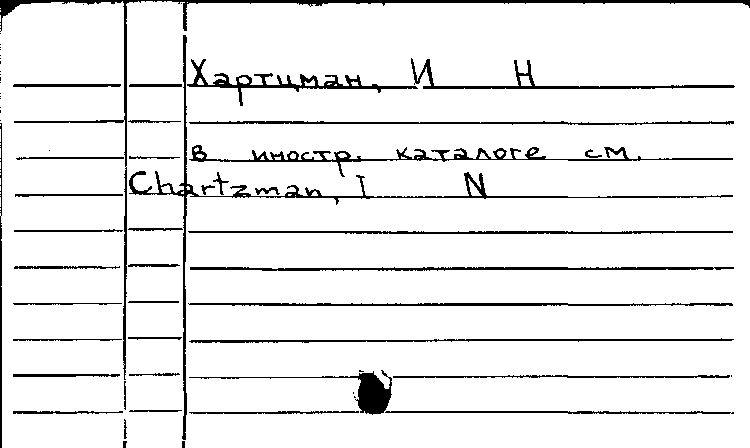 Хартцман, И Н
в иностр. каталоге см.
Chartzman, I N